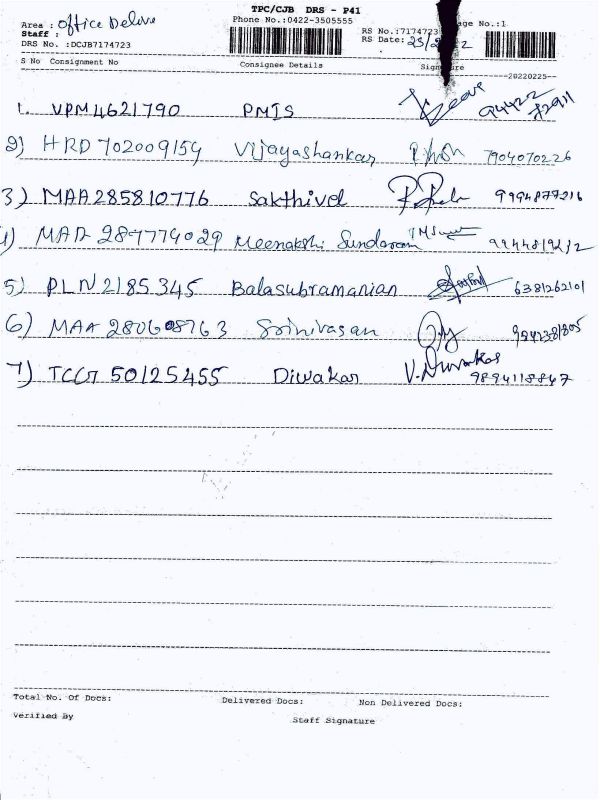 TPC/CJB DRS - P41
Area : Office Delive
Phone No.:0422-3505555
RS No.:7174723
age No.:1
Staff :
RS Date:
DRS No. :DCJB7174723
S No Consignment No Consignee Details Signature
20220225
1. VPM4621790 PMIS
2) HRD 702009154 Vijayashankar 7904070226
3) MAA285810776 Sakthivel 9994877216
4) MAA 287774029 Meenakshi Sundaram
5) PLN2185345 Balasubramanian 6381262101
6) MAA 280608763 Srinivasan
7) TCCT 50125455 Diwakar V. Diwakar
9894118847
Total No. Of Docs: Delivered Docs: Non Delivered Docs:
Verified By Staff Signature